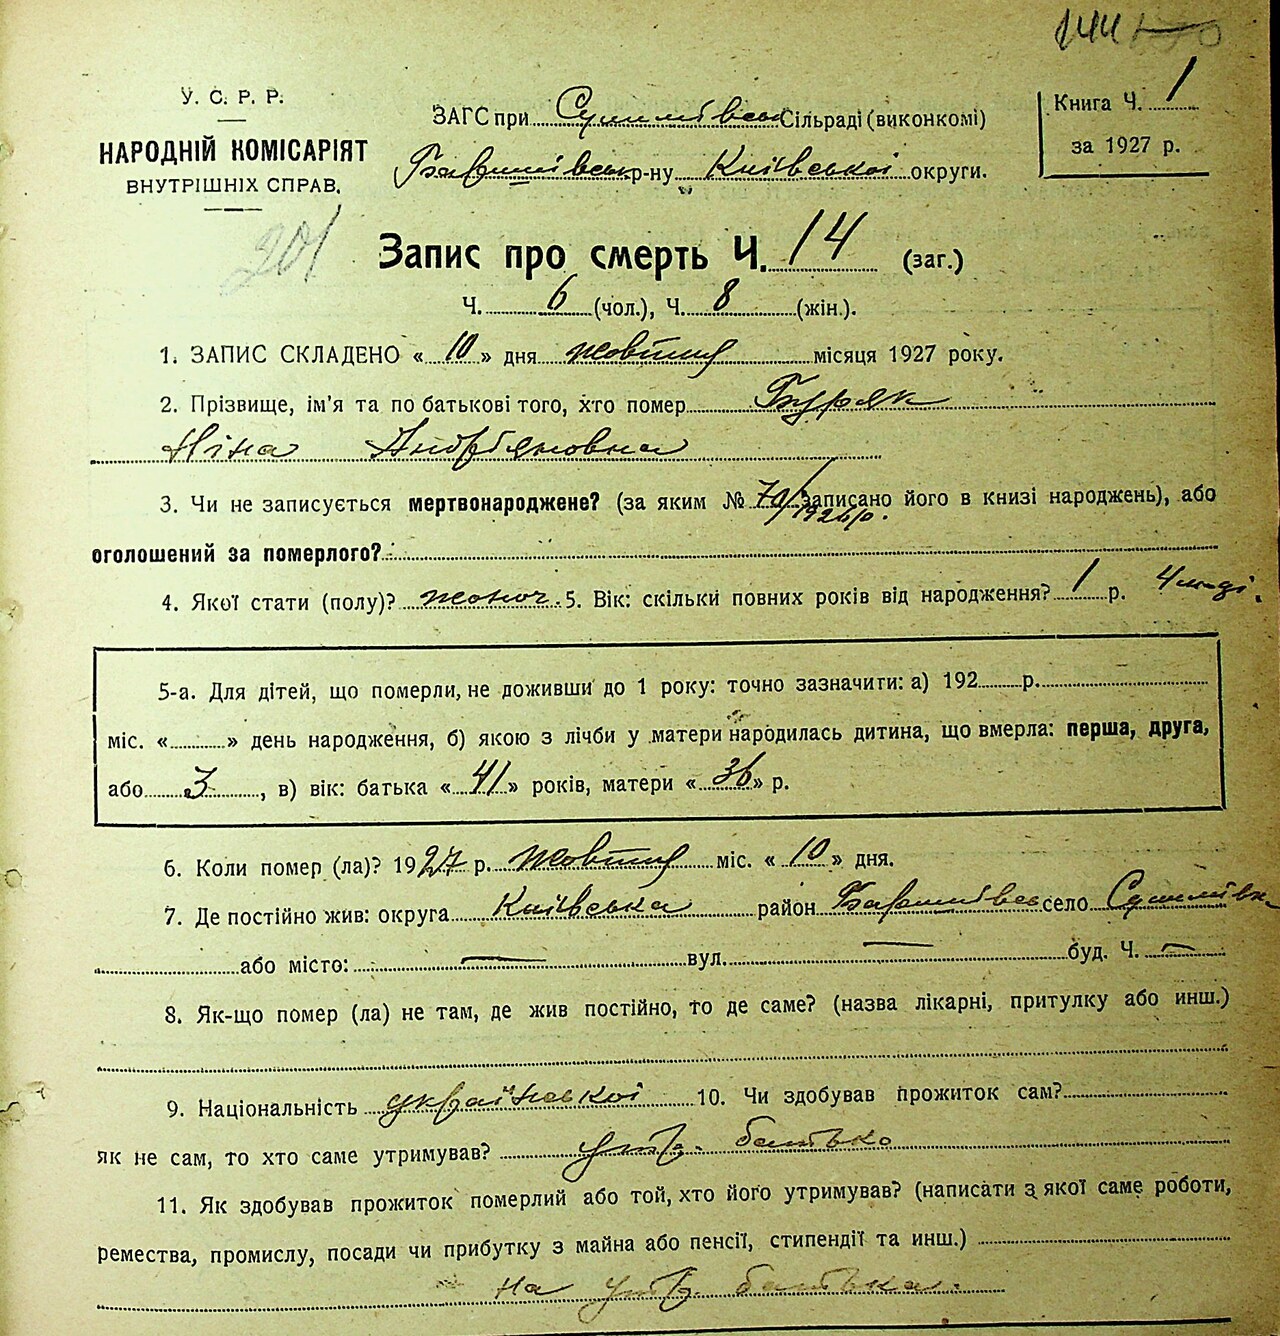 144
У. С. Р. Р.
НАРОДНІЙ КОМІСАРІЯТ
ВНУТРІШНІХ СПРАВ.
201
ЗАГС при Сулимівськ Сільраді (виконкомі)
Баришівськ р-ну Київської округи.
Книга Ч. 1
за 1927 р.
Запис про смерть Ч. 14 (заг.)
Ч. 6 (чол.), Ч. 8 (жін.).
1. ЗАПИС СКЛАДЕНО « 10 » дня жовтня місяця 1927 року.
2. Прізвище, ім'я та по батькові того, хто помер Буряк
Ніна Андріяновна
3. Чи не записується мертвонароджене? (за яким № 70/1926р. записано його в книзі народжень), або
оголошений за померлого?
4. Якої стати (полу)? жоноч. 5. Вік: скільки повних років від народження? 1 р. 4
5-а. Для дітей, що померли, не доживши до 1 року: точно зазначити: а) 192 р.
міс. « » день народження, б) якою з лічби у матери народилась дитина, що вмерла: перша, друга,
або 3, в) вік: батька « 41 » років, матери « 36 » р.
6. Коли помер (ла)? 1927 р. жовтня міс. « 10 » дня.
7. Де постійно жив: округа Київська район Баришівськ село Сулимівк
або місто: — вул. — буд. Ч. —
8. Як-що помер (ла) не там, де жив постійно, то де саме? (назва лікарні, притулку або инш.)
9. Національність української 10. Чи здобував прожиток сам?
як не сам, то хто саме утримував? утр. батько
11. Як здобував прожиток померлий або той, хто його утримував? (написати з якої саме роботи,
ремества, промислу, посади чи прибутку з майна або пенсії, стипендії та инш.)
на утр. батька.